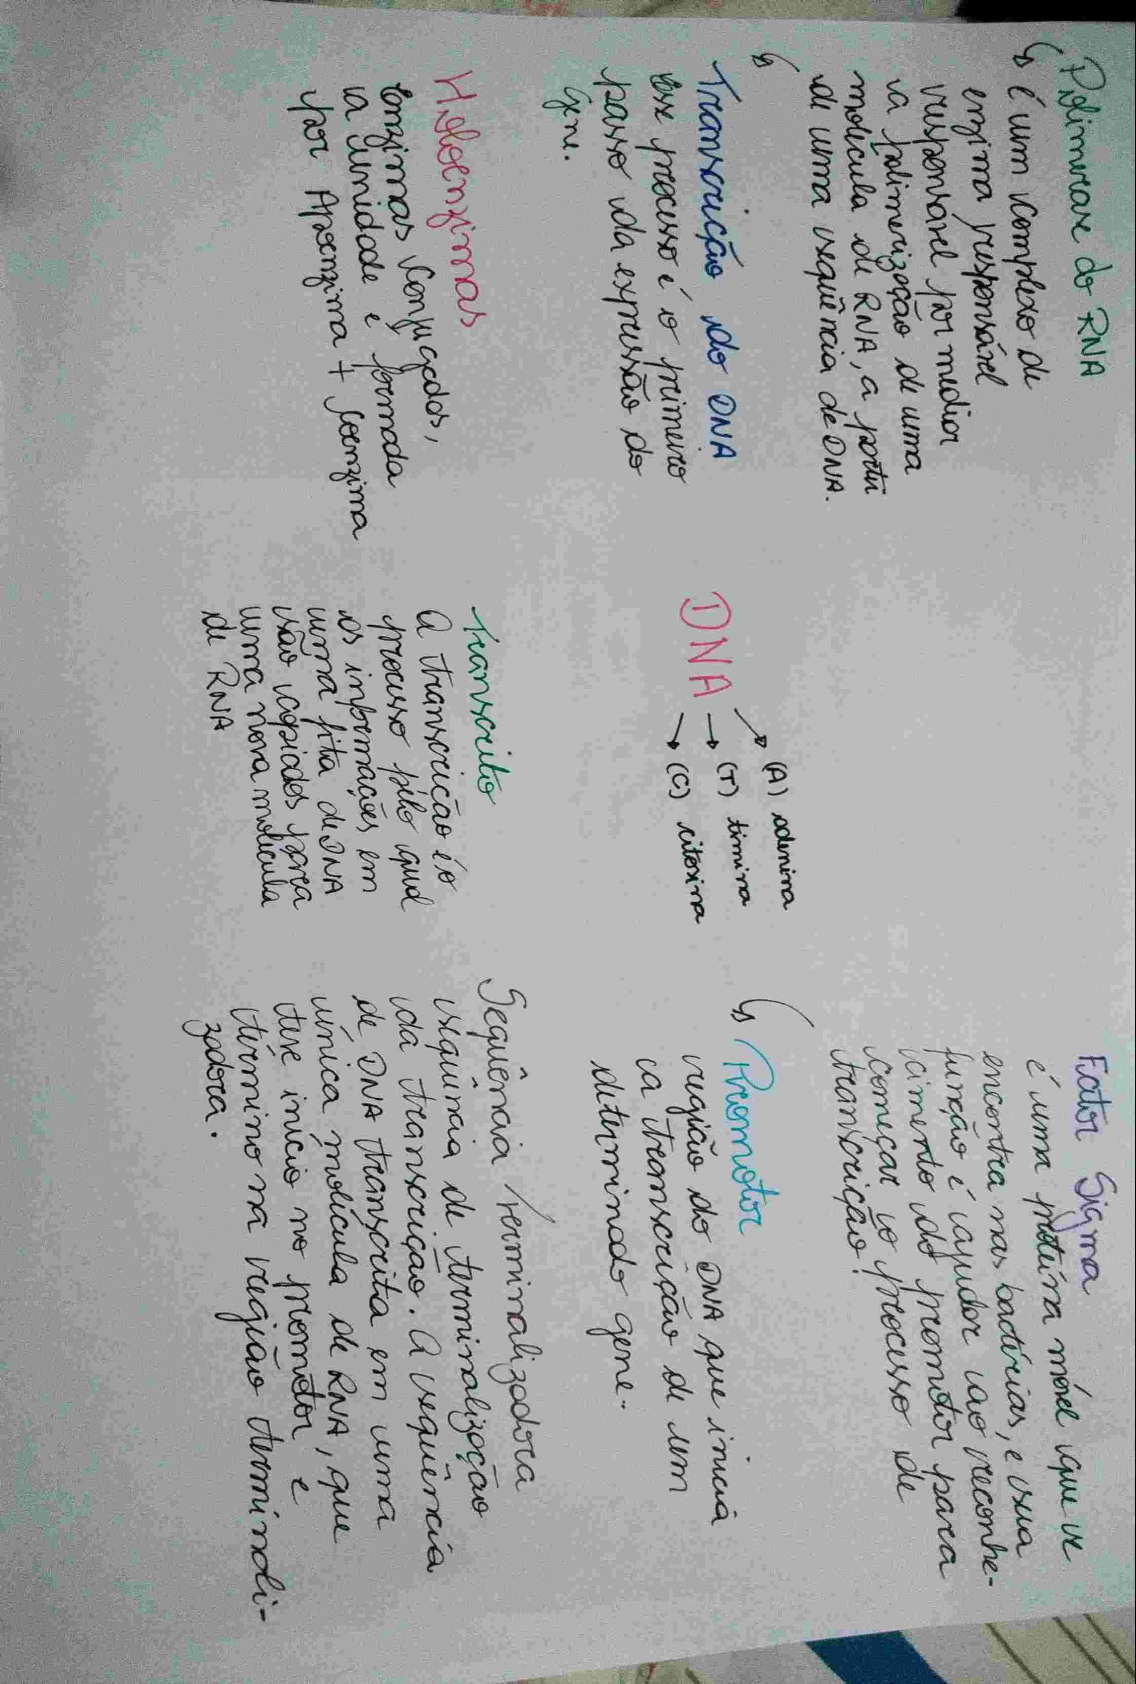 Polimerase do RNA
↳ é um complexo de
enzima responsável
responsável por mediar
a polimerização de uma
molécula de RNA, a partir
de uma sequência de DNA.
Fator Sigma
é uma proteína móvel que se
encontra nas bactérias, e sua
função é ajudar ao reconhe-
cimento do promotor para
começar o processo de
transcrição!
↳
Transcrição do DNA
esse processo é o primeiro
passo da expressão do
gene.
DNA
→ (A) adenina
→ (T) timina
→ (C) citosina
↳ Promotor
região do DNA que inicia
a transcrição de um
determinado gene.
Holoenzimas
Enzimas conjugadas,
a unidade é formada
por Apoenzima + coenzima
Transcrito
A transcrição é o
processo pelo qual
as informações em
uma fita de DNA
são copiadas para
uma nova molécula
de RNA
Sequência terminalizadora
sequencia de terminalização
da transcrição. A sequência
de DNA transcrita em uma
única molécula de RNA, que
teve inicio no promotor e
término na região terminali-
zadora.